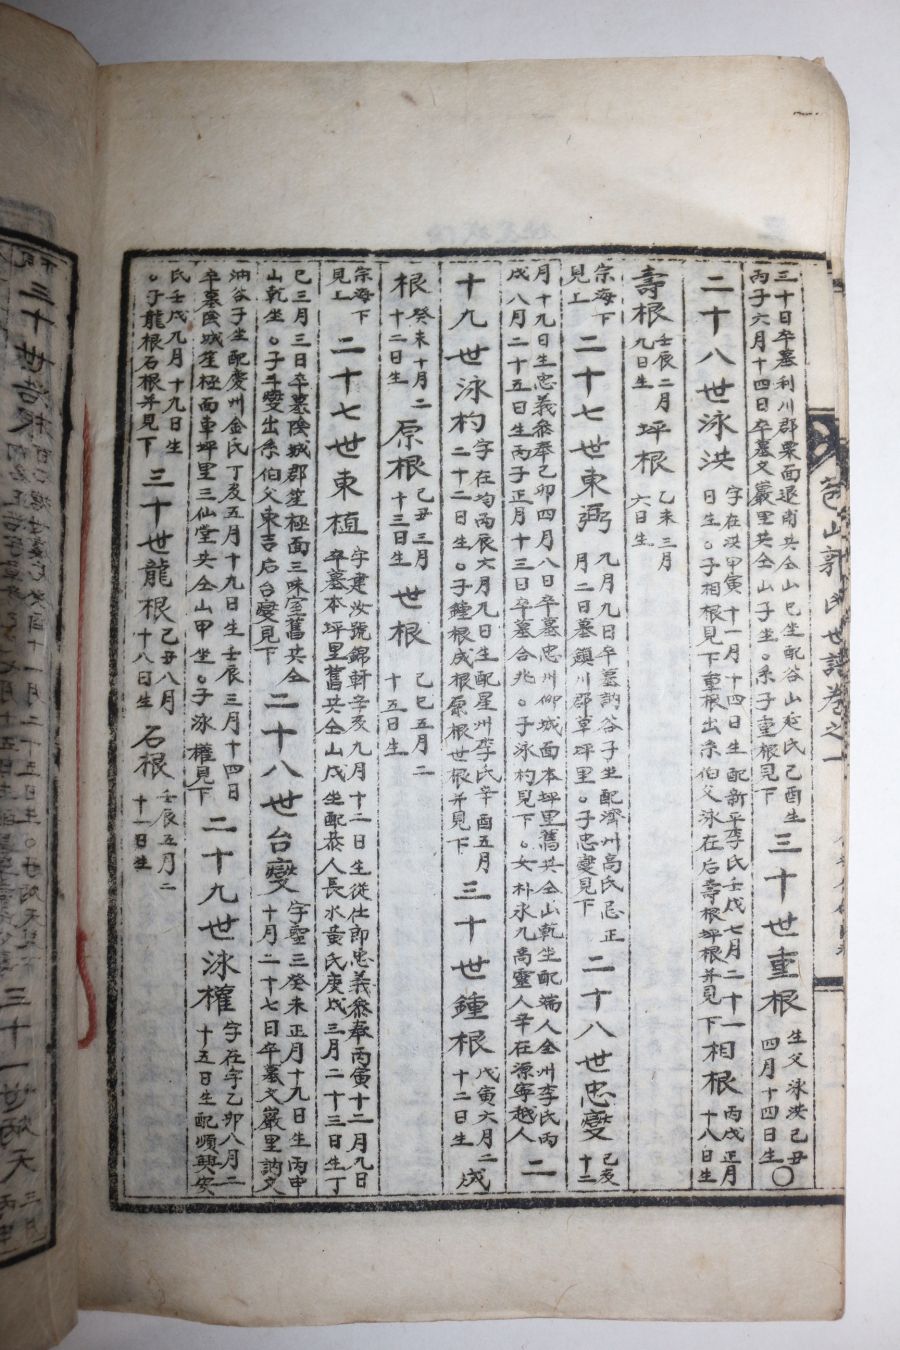 苞山郭氏世譜卷之一
三十日卒墓利川郡栗面退南共仝山巳坐配谷山延氏己酉生
丙子六月十四日卒墓文巖里共仝山子坐○系子重根見下
三十世重根
生父泳洪己丑
四月十四日生○
二十八世泳洪
字在洪甲寅十一月十四日生配新平李氏壬戌七月二十一
日生○子相根見下重根出系伯父泳在后壽根坪根并見下
相根
丙戌正月
十八日生
壽根
壬辰二月
九日生
坪根
乙未三月
六日生
宗海下
見上
二十七世東弼
九月九日卒墓訥谷子坐配濟州高氏忌正
月二日墓鎭川郡草坪里○子忠燮見下
二十八世忠燮
己亥
十二
月十九日生忠義參奉己卯四月八日卒墓忠州仰城面本坪里舊共仝山乾坐配端人全州李氏丙
戌八月二十五日生丙子正月十三日卒墓合兆○子泳杓見下○女朴永九高靈人辛在源寧越人
二
十九世泳杓
字在均丙辰六月九日生配星州李氏辛酉五月
二十二日生○子鍾根成根原根世根并見下
三十世鍾根
戊寅六月二
十二日生
成
根
癸未十月二
十二日生
原根
己丑三月
十三日生
世根
己巳五月二
十五日生
宗海下
見上
二十七世東植
字建汝號錦軒辛亥九月十二日生從仕郎忠義參奉丙寅十二月九日
卒墓本坪里舊共仝山戌坐配恭人長水黃氏庚戌三月二十三日生丁
巳三月三日卒墓陰城郡笙極面三味室舊共仝
山乾坐○子斗燮出系伯父東吉后台燮見下
二十八世台燮
字聖三癸未正月十九日生丙申
十月二十七日卒墓文巖里訥文
油谷子坐配慶州金氏丁亥五月十九日生壬辰三月十四日
卒墓陰城笙極面車坪里三仙堂共仝山甲坐○子泳權見下
二十九世泳權
字在字乙卯八月二
十五日生配順興安
氏壬戌九月十九日生
○子龍根石根并見下
三十世龍根
己丑八月
十八日生
石根
壬辰五月二
十一日生